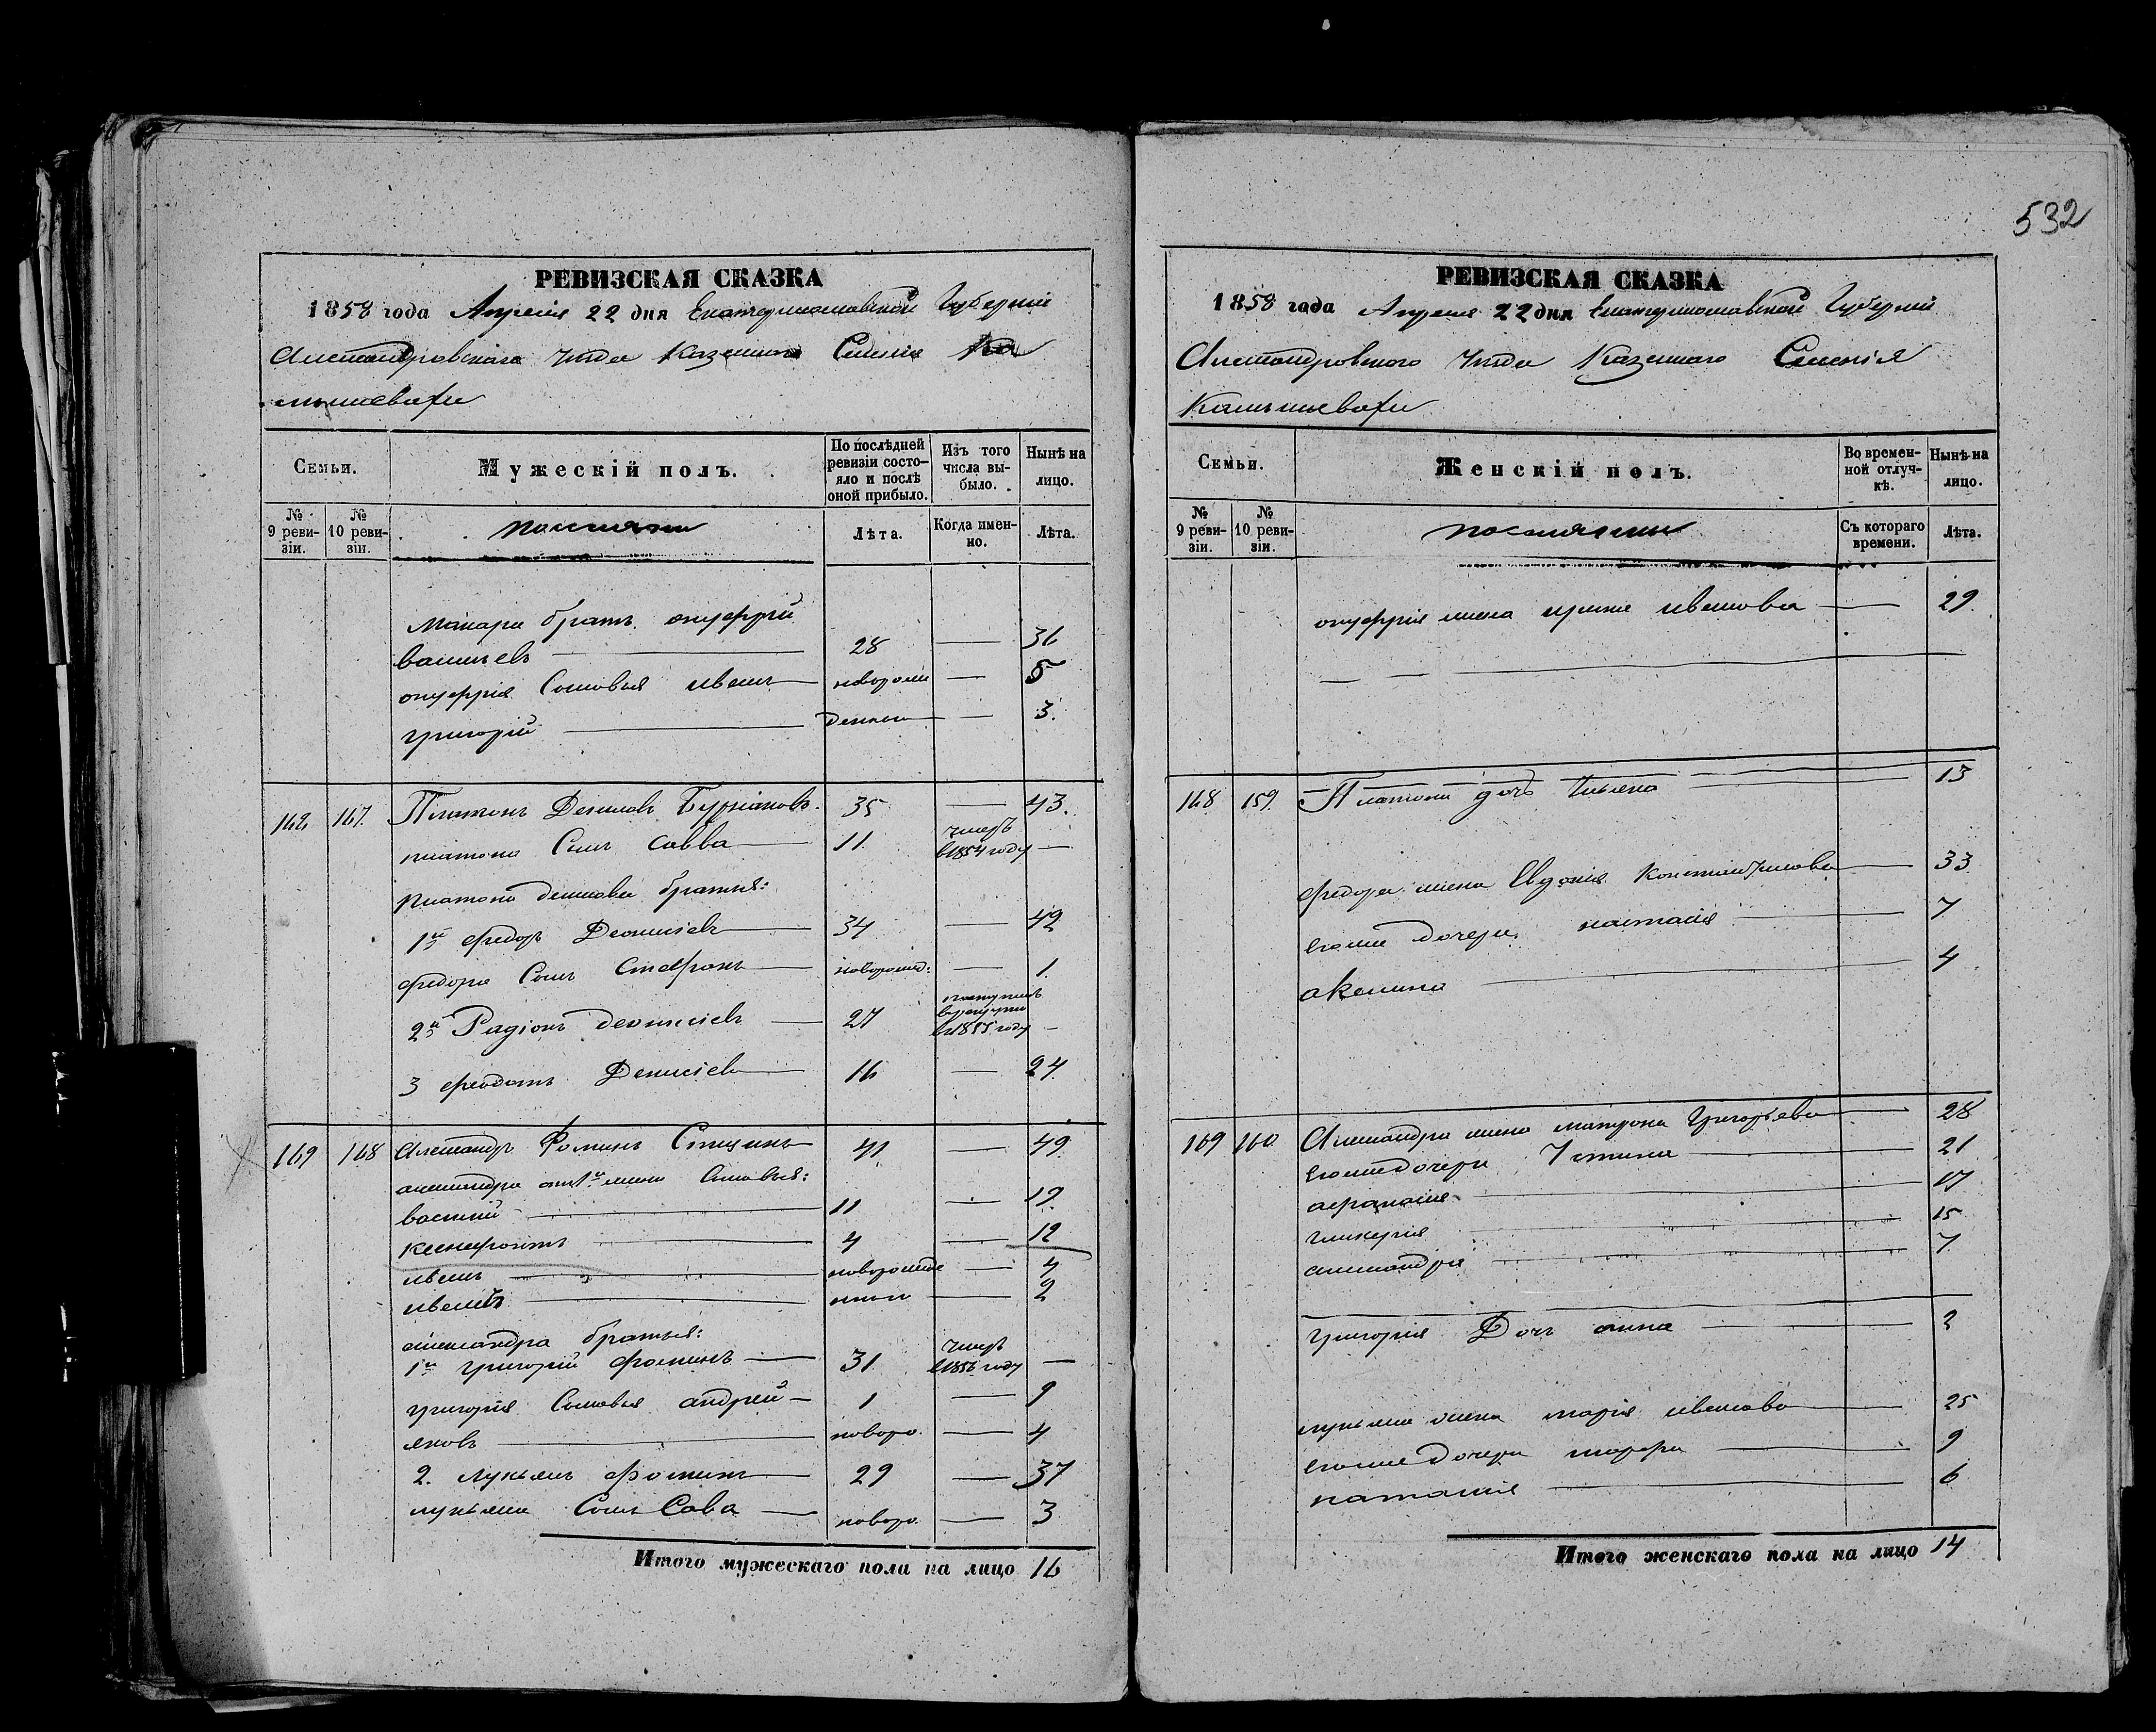 532
РЕВИЗСКАЯ СКАЗКА
1858 года Апреля 22 дня Екатеринославской Губерніи
Александровскаго Уезда Казеннаго Селенія Ка
мышевахи
Семьи.
Мужескій полъ.
По послѣдней ревизіи состо-яло и послѣ оной прибыло.
Изъ того числа вы-было.
Нынѣ на лицо.
№ 9 реви-зіи.
№ 10 реви-зіи.
поселяни
Лѣта.
Когда имен-но.
Лѣта.
Макара братъ онуфрій
васильевъ 28 — 36
онуфрія Сыновья иванъ новорож — 5
григорій денные — 3.
162 167. Платонъ Денисовъ Бурлаковъ. 35 — 43.
платона Сынъ Савва 11. умеръ в 1854 году —
платона денисова братья:
1й федоръ Деонисіевъ 34 — 42
федора Сынъ Стефанъ новорожд: — 1.
2й Радіонъ деонисіевъ 27 в 1855 году —
3 феодотъ Денисіевъ 16 — 24
169 168 Александръ Фоминъ Спицинъ 41 — 49
александра от 1й жены Сыновья:
василий 11 — 19
ксенофонтъ 4 — 12
иванъ новорожде — 4
иванъ нные — 2
александра братья:
1й григорій фоминъ 31 умеръ в 1856 году —
григорія Сыновья андрей 1 — 9
яковъ новоро. — 4
2. лукьянъ фоминъ 29 — 37
лукьяна Сынъ Сава новоро. — 3
Итого мужескаго пола на лицо 16
РЕВИЗСКАЯ СКАЗКА
1858 года Апреля 22 дня Екатеринославской Губерніи
Александровскаго Уезда Казеннаго Селенія
Камышевахи
Семьи.
Женскій полъ.
Во времен-ной отлуч-кѣ.
Нынѣ на лицо.
№ 9 реви-зіи.
№ 10 реви-зіи.
поселянки
Съ котораго времени.
Лѣта.
онуфрія жена ирина иванова — 29.
168 159. Платона дочь Ульяна 13
федора жена Евдокія Константинова — 33.
егоже дочери настасія 7
акелина 4
169 160 Александра жена матрона Григорьева — 28
егоже дочери Устина 21
афанасія 17
гликерія 15
александра 7.
григорія Дочь анна 2
лукьяна жена марія иванова 25
егоже дочери марфа 9
наталия 6
Итого женскаго пола на лицо 14